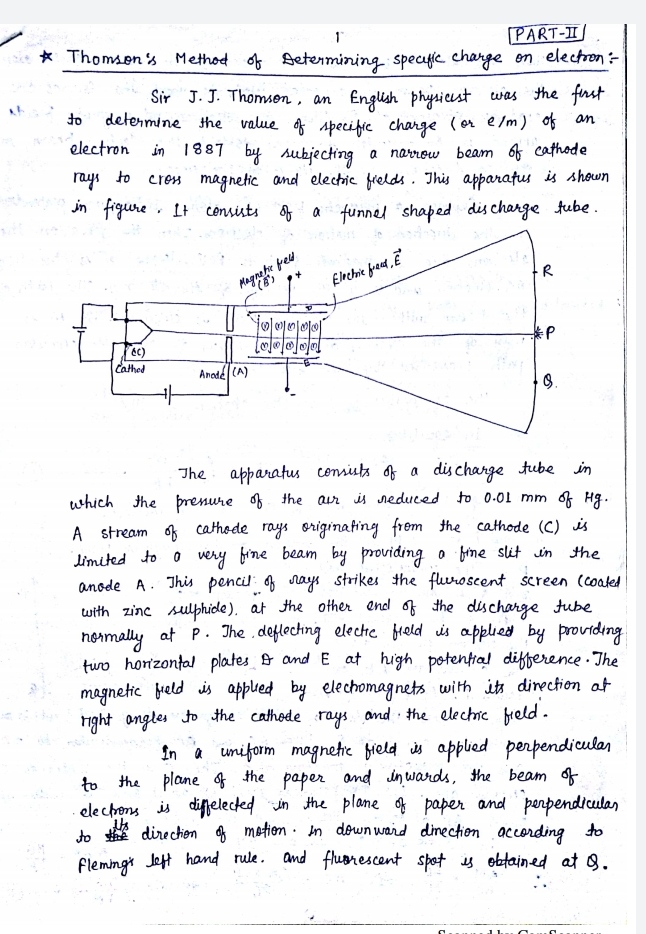 1
PART-II
* Thomson's Method of Determining specific charge on electron :-
Sir J. J. Thomson, an English physicist was the first
to determine the value of specific charge (or e/m) of an
electron in 1887 by subjecting a narrow beam of cathode
rays to cross magnetic and electric fields. This apparatus is shown
in figure. It consists of a funnel shaped discharge tube.
Magnetic field
(B)
+
Electric field, E⃗
D
R
P
Q.
(C)
Cathod
Anode (A)
E
-
The apparatus consists of a discharge tube in
which the pressure of the air is reduced to 0.01 mm of Hg.
A stream of cathode rays originating from the cathode (C) is
limited to a very fine beam by providing a fine slit in the
anode A. This pencil of rays strikes the fluroscent screen (coated
with zinc sulphide), at the other end of the discharge tube
normally at P. The deflecting electic field is applied by providing
two horizontal plates D and E at high potential difference. The
magnetic field is applied by electromagnets with its direction at
right angles to the cathode rays and the electric field.
In a uniform magnetic field is applied perpendicular
to the plane of the paper and inwards, the beam of
electrons is diffelected in the plane of paper and perpendicular
to its direction of motion. in downward direction according to
Fleming's left hand rule. and fluorescent spot is obtained at Q.